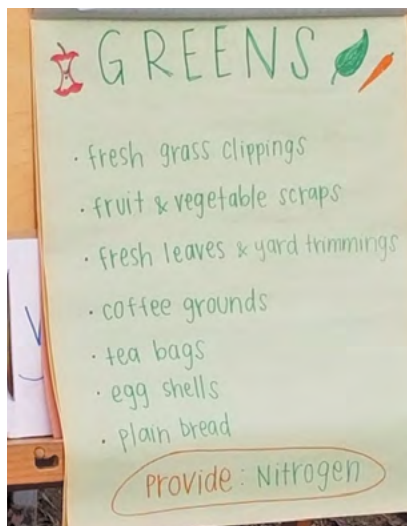 GREENS
· fresh grass clippings
· fruit & vegetable scraps
· fresh leaves & yard trimmings
· coffee grounds
· tea bags
· egg shells
· plain bread
Provide: Nitrogen